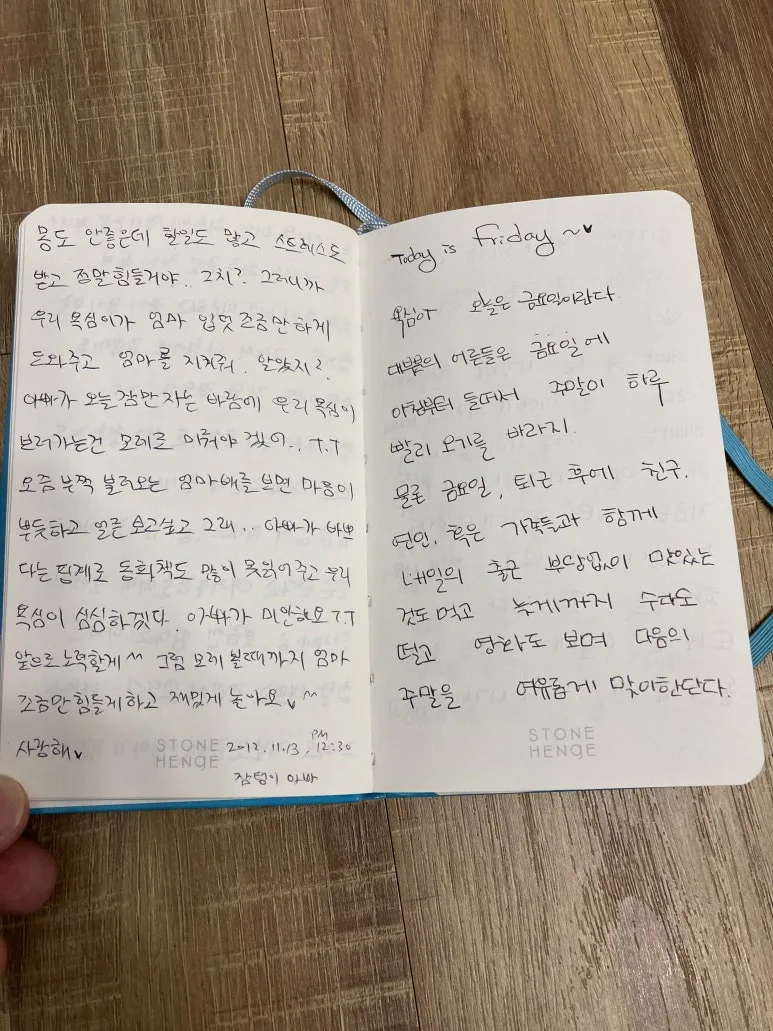 몸도 안좋은데 할일도 많고 스트레스도
받고 정말힘들거야.. 그치?. 그러니까
우리 욕심이가 엄마 입덧 조금만 하게
도와주고 엄마를 지켜줘. 알았지?
아빠가 오늘 잠만 자는 바람에 우리 욕심이
보러가는건 모레로 미뤄야 겠어.. T.T
요즘 부쩍 불러오는 엄마배를 보면 마음이
뿌듯하고 얼른 보고싶고 그래.. 아빠가 바쁘
다는 핑계로 동화책도 많이 못읽어주고 우리
욕심이 심심하겠다. 아빠가 미안해요 T.T
앞으로 노력할게 ^^ 그럼 모레 볼때까지 엄마
조금만 힘들게하고 재밌게 놀아요 ♥ ^^
사랑해♥ 2012.11.13, PM 12:30
잠텅이 아빠
STONE
HENGE
Today is Friday ~♥
욕심아 오늘은 금요일이란다.
대부분의 어른들은 금요일에
아침부터 들떠서 주말이 하루
빨리 오기를 바라지.
물론 금요일, 퇴근 후에 친구.
연인, 혹은 가족들과 함께
내일의 출근 부담없이 맛있는
것도 먹고 늦게까지 수다도
떨고 영화도 보며 다음의
주말을 여유롭게 맞이한단다.
STONE
HENGE